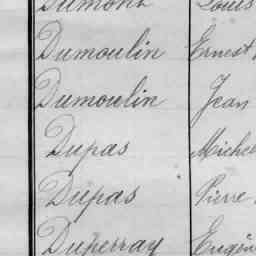 Dumont Louis
Dumoulin Ernest
Dumoulin Jean
Dupas Michel
Dupas Pierre
Duperray Eugèn